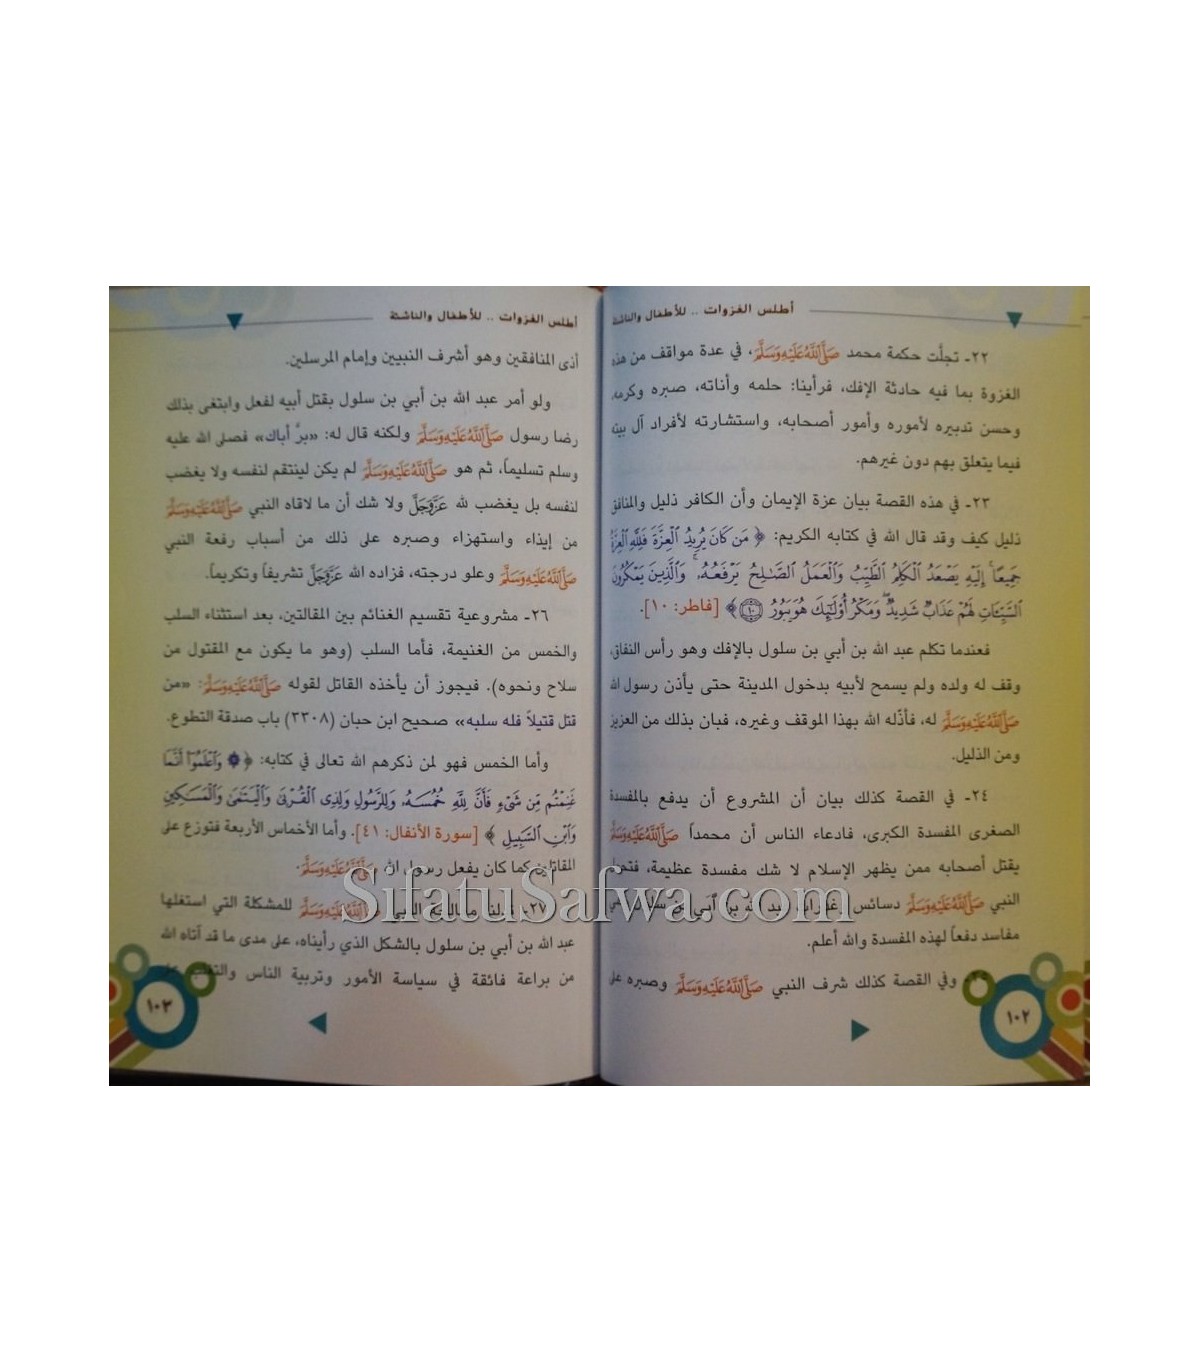 أطلس الغزوات .. للأطفال والناشئة
٢٢- تجلَّت حكمة محمد ﷺ، في عدة مواقف من هذه
الغزوة بما فيه حادثة الإفك، فرأينا: حلمه وأناته، صبره وكرمه،
وحسن تدبيره لأموره وأمور أصحابه، واستشارته لأفراد آل بيته
فيما يتعلق بهم دون غيرهم.
٢٣- في هذه القصة بيان عزة الإيمان وأن الكافر ذليل والمنافق
ذليل كيف وقد قال الله في كتابه الكريم: ﴿ مَن كَانَ يُرِيدُ ٱلْعِزَّةَ فَلِلَّهِ ٱلْعِزَّةُ
جَمِيعًا ۚ إِلَيْهِ يَصْعَدُ ٱلْكَلِمُ ٱلطَّيِّبُ وَٱلْعَمَلُ ٱلصَّـٰلِحُ يَرْفَعُهُۥ ۚ وَٱلَّذِينَ يَمْكُرُونَ
ٱلسَّيِّـَٔاتِ لَهُمْ عَذَابٌ شَدِيدٌ ۖ وَمَكْرُ أُو۟لَـٰٓئِكَ هُوَ يَبُورُ ۝١٠ ﴾ [فاطر: ١٠].
فعندما تكلم عبد الله بن أبي بن سلول بالإفك وهو رأس النفاق،
وقف له ولده ولم يسمح لأبيه بدخول المدينة حتى يأذن رسول الله
ﷺ له، فأذلّه الله بهذا الموقف وغيره، فبان بذلك من العزيز
ومن الذليل.
٢٤- في القصة كذلك بيان أن المشروع أن يدفع بالمفسدة
الصغرى المفسدة الكبرى، فادعاء الناس أن محمداً ﷺ
يقتل أصحابه ممن يظهر الإسلام لا شك مفسدة عظيمة، فتحمل
النبي ﷺ دسائس عبد الله بن أبي بن سلول
مفاسد دفعاً لهذه المفسدة والله أعلم.
٢٥- وفي القصة كذلك شرف النبي ﷺ وصبره على
١٠٢
أطلس الغزوات .. للأطفال والناشئة
أذى المنافقين وهو أشرف النبيين وإمام المرسلين.
ولو أمر عبد الله بن أبي بن سلول بقتل أبيه لفعل وابتغى بذلك
رضا رسول ﷺ ولكنه قال له: «برَّ أباك» فصلى الله عليه
وسلم تسليماً، ثم هو ﷺ لم يكن لينتقم لنفسه ولا يغضب
لنفسه بل يغضب لله عَزَّوَجَلَّ ولا شك أن ما لاقاه النبي ﷺ
من إيذاء واستهزاء وصبره على ذلك من أسباب رفعة النبي
ﷺ وعلو درجته، فزاده الله عَزَّوَجَلَّ تشريفاً وتكريماً.
٢٦- مشروعية تقسيم الغنائم بين المقاتلين، بعد استثناء السلب
والخمس من الغنيمة، فأما السلب (وهو ما يكون مع المقتول من
سلاح ونحوه). فيجوز أن يأخذه القاتل لقوله ﷺ: «من
قتل قتيلاً فله سلبه» صحيح ابن حبان (٣٣٠٨) باب صدقة التطوع.
وأما الخمس فهو لمن ذكرهم الله تعالى في كتابه: ﴿ ۞ وَٱعْلَمُوٓا۟ أَنَّمَا
غَنِمْتُم مِّن شَىْءٍ فَأَنَّ لِلَّهِ خُمُسَهُۥ وَلِلرَّسُولِ وَلِذِى ٱلْقُرْبَىٰ وَٱلْيَتَـٰمَىٰ وَٱلْمَسَـٰكِينِ
وَٱبْنِ ٱلسَّبِيلِ ﴾ [سورة الأنفال: ٤١]. وأما الأخماس الأربعة فتوزع على
المقاتلين كما كان يفعل رسول الله ﷺ.
٢٧- معالجة النبي ﷺ للمشكلة التي استغلها
عبد الله بن أبي بن سلول بالشكل الذي رأيناه، على مدى ما قد آتاه الله
من براعة فائقة في سياسة الأمور وتربية الناس والتغلب على
١٠٣
SifatuSafwa.com